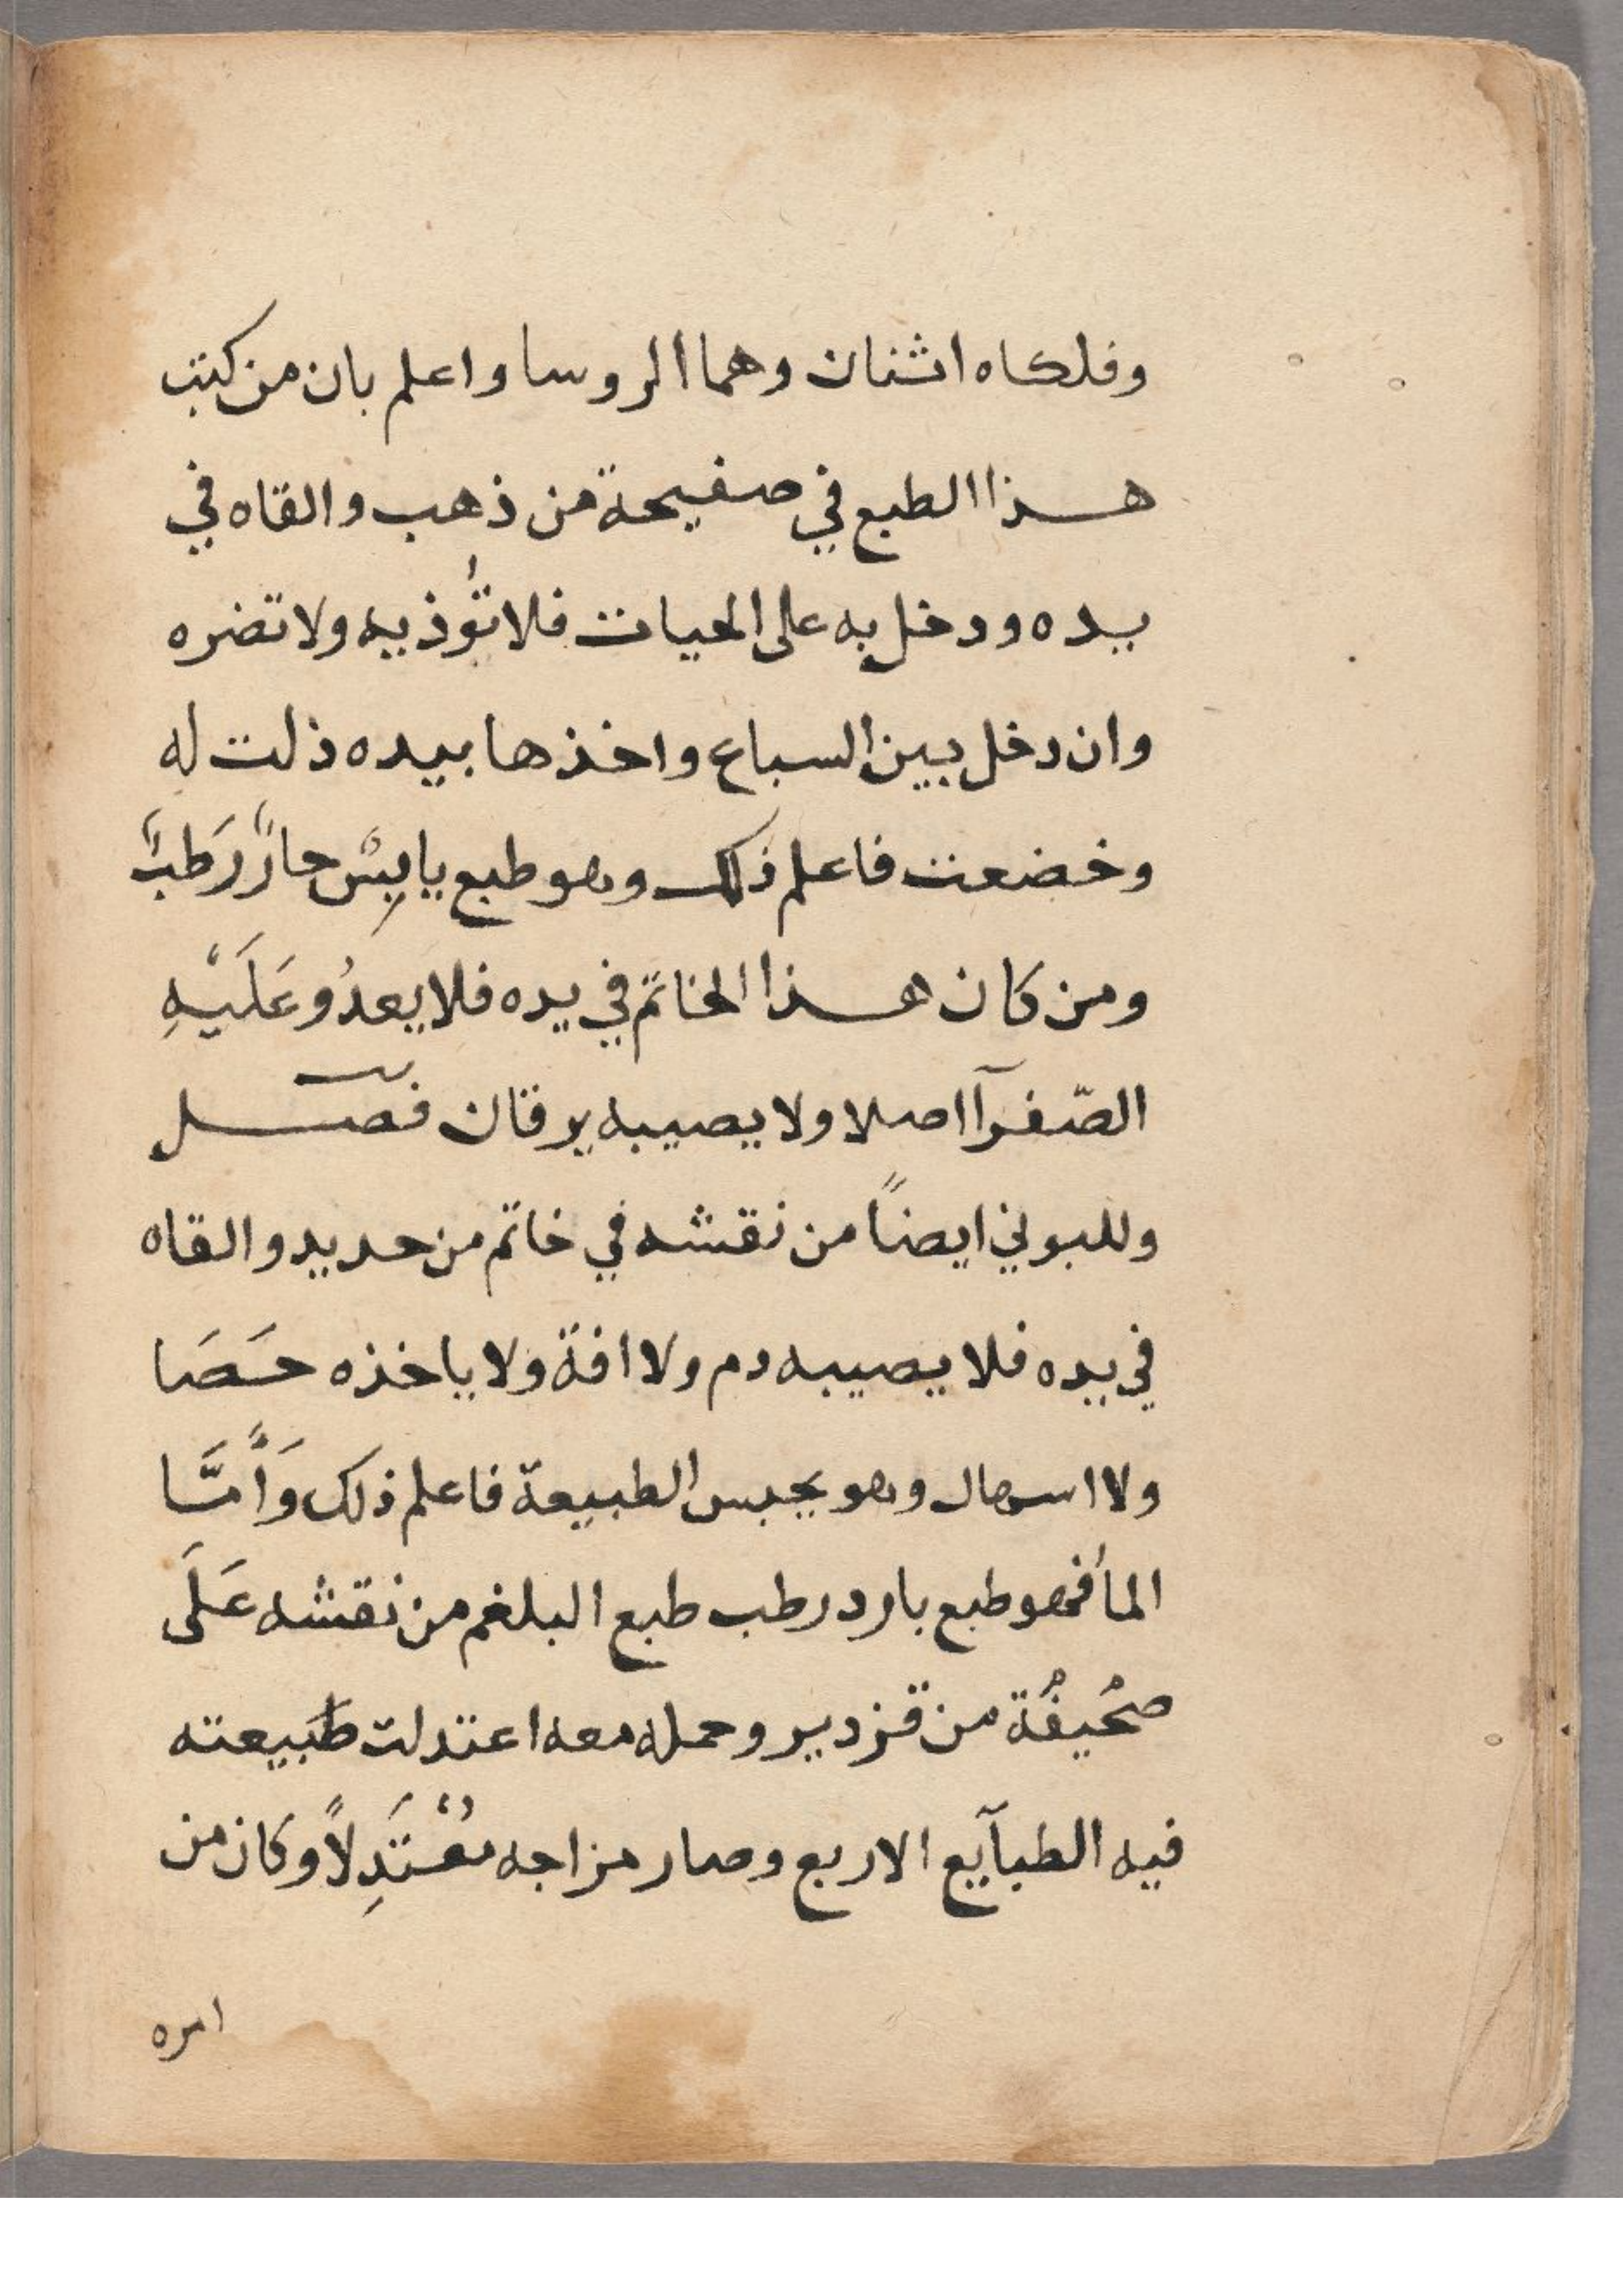 وفلكاه اثنان وهما الروسا واعلم بان من كتب
هذا الطبع في صفيحة من ذهب والقاه في
يده ودخل به على الحيات فلا تؤذيه ولا تضره
وان دخل بين السباع واخذها بيده ذلت له
وخضعت فاعلم ذلك وهو طبع يابسٌ حارٌ رَطبٌ
ومن كان هذا الخاتم في يده فلا يعدُو عَلَيْهِ
الصّفرآ اصلا ولا يصيبه يرقان فصل
وللبوني ايضاً من نقشه في خاتم من حديد والقاه
في يده فلا يصيبه دم ولا افة ولا ياخذه حَصَا
ولا اسهال وهو يحبس الطبيعة فاعلم ذلك وَأَمَّا
المأ فهو طبع بارد رطب طبع البلغم من نقشه عَلَى
صحُيفُة من قزدير وحمله معه اعتدلت طَبيعته
فيه الطبآيع الاربع وصار مزاجه مُعْتَدِلاً وكان من
امره